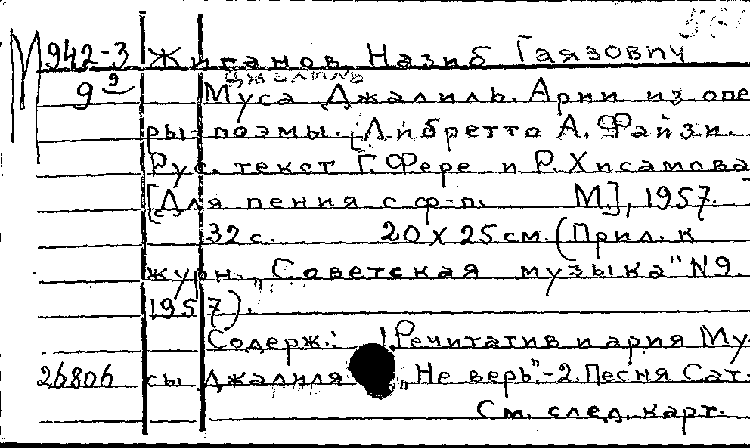 М 942-3 Жиганов Назиб Гаязович
9 9 Джалиль
Муса Джалиль. Арии из опе
ры-поэмы. [Либретто А. Файзи.
Рус. текст Г. Фере и Р. Хисамова]
[Для пения с ф-п. М.], 1957.
32 с. 20 х 25 см. (Прил. к
журн. „Советская музыка" N9.
1957).
Содерж.: 1. Речитатив и ария Му-
26806 сы Джалиля „Не верь".-2. Песня Сат-
См. след. карт.